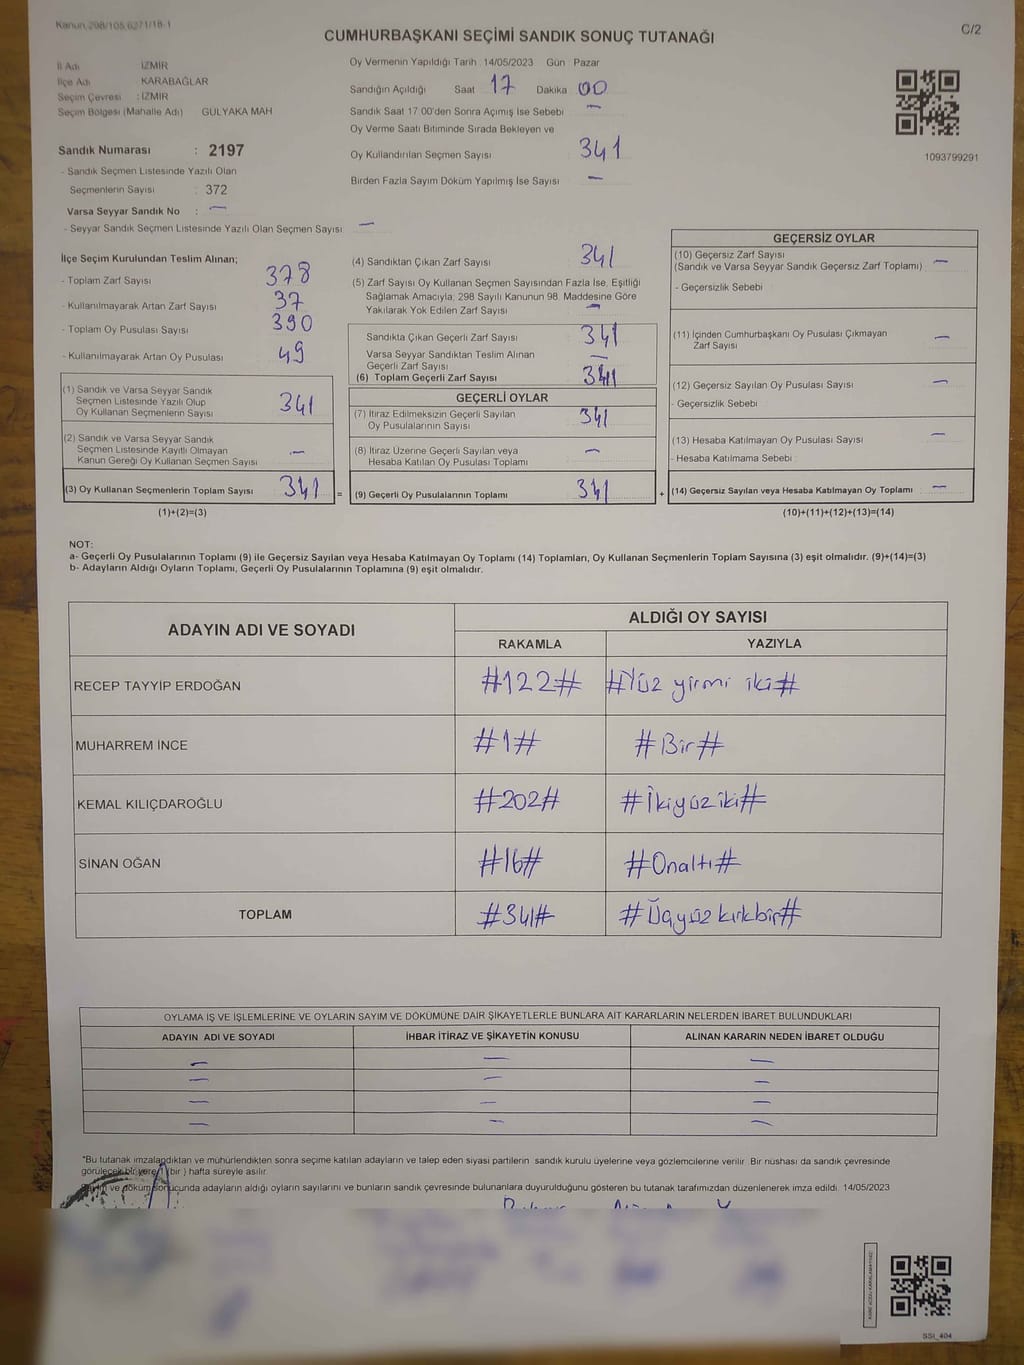 Kanun 298/105,6271/18-1
C/2
CUMHURBAŞKANI SEÇİMİ SANDIK SONUÇ TUTANAĞI
İl Adı : İZMİR
İlçe Adı : KARABAĞLAR
Seçim Çevresi : İZMİR
Seçim Bölgesi (Mahalle Adı) GÜLYAKA MAH
Sandık Numarası : 2197
- Sandık Seçmen Listesinde Yazılı Olan
Seçmenlerin Sayısı : 372
Varsa Seyyar Sandık No : —
- Seyyar Sandık Seçmen Listesinde Yazılı Olan Seçmen Sayısı : —
Oy Vermenin Yapıldığı Tarih : 14/05/2023 Gün : Pazar
Sandığın Açıldığı Saat 17 Dakika 00
Sandık Saat 17.00'den Sonra Açımış İse Sebebi —
Oy Verme Saati Bitiminde Sırada Bekleyen ve
Oy Kullandırılan Seçmen Sayısı 341
Birden Fazla Sayım Döküm Yapılmış İse Sayısı —
1093799291
İlçe Seçim Kurulundan Teslim Alınan;
- Toplam Zarf Sayısı 378
- Kullanılmayarak Artan Zarf Sayısı 37
- Toplam Oy Pusulası Sayısı 390
- Kullanılmayarak Artan Oy Pusulası 49
(1) Sandık ve Varsa Seyyar Sandık
Seçmen Listesinde Yazılı Olup
Oy Kullanan Seçmenlerin Sayısı 341
(2) Sandık ve Varsa Seyyar Sandık
Seçmen Listesinde Kayıtlı Olmayan
Kanun Gereği Oy Kullanan Seçmen Sayısı —
(3) Oy Kullanan Seçmenlerin Toplam Sayısı 341
(1)+(2)=(3)
(4) Sandıktan Çıkan Zarf Sayısı 341
(5) Zarf Sayısı Oy Kullanan Seçmen Sayısından Fazla İse, Eşitliği
Sağlamak Amacıyla; 298 Sayılı Kanunun 98. Maddesine Göre
Yakılarak Yok Edilen Zarf Sayısı —
Sandıkta Çıkan Geçerli Zarf Sayısı 341
Varsa Seyyar Sandıktan Teslim Alınan
Geçerli Zarf Sayısı —
(6) Toplam Geçerli Zarf Sayısı 341
GEÇERLİ OYLAR
(7) İtiraz Edilmeksizin Geçerli Sayılan
Oy Pusulalarının Sayısı 341
(8) İtiraz Üzerine Geçerli Sayılan veya
Hesaba Katılan Oy Pusulası Toplamı —
= (9) Geçerli Oy Pusulalarının Toplamı 341
GEÇERSİZ OYLAR
(10) Geçersiz Zarf Sayısı —
(Sandık ve Varsa Seyyar Sandık Geçersiz Zarf Toplamı)
- Geçersizlik Sebebi
(11) İçinden Cumhurbaşkanı Oy Pusulası Çıkmayan
Zarf Sayısı —
(12) Geçersiz Sayılan Oy Pusulası Sayısı —
- Geçersizlik Sebebi
(13) Hesaba Katılmayan Oy Pusulası Sayısı —
- Hesaba Katılmama Sebebi
+ (14) Geçersiz Sayılan veya Hesaba Katılmayan Oy Toplamı —
(10)+(11)+(12)+(13)=(14)
NOT:
a- Geçerli Oy Pusulalarının Toplamı (9) ile Geçersiz Sayılan veya Hesaba Katılmayan Oy Toplamı (14) Toplamları, Oy Kullanan Seçmenlerin Toplam Sayısına (3) eşit olmalıdır. (9)+(14)=(3)
b- Adayların Aldığı Oyların Toplamı, Geçerli Oy Pusulalarının Toplamına (9) eşit olmalıdır.
ADAYIN ADI VE SOYADI
ALDIĞI OY SAYISI
RAKAMLA YAZIYLA
RECEP TAYYİP ERDOĞAN #122# #Yüz yirmi iki#
MUHARREM İNCE #1# #Bir#
KEMAL KILIÇDAROĞLU #202# #İkiyüziki#
SİNAN OĞAN #16# #Onaltı#
TOPLAM #341# #Üçyüz kırkbir#
OYLAMA İŞ VE İŞLEMLERİNE VE OYLARIN SAYIM VE DÖKÜMÜNE DAİR ŞİKAYETLERLE BUNLARA AİT KARARLARIN NELERDEN İBARET BULUNDUKLARI
ADAYIN ADI VE SOYADI İHBAR İTİRAZ VE ŞİKAYETİN KONUSU ALINAN KARARIN NEDEN İBARET OLDUĞU
— — —
— — —
— — —
— — —
*Bu tutanak imzalandıktan ve mühürlendikten sonra seçime katılan adayların ve talep eden siyasi partilerin sandık kurulu üyelerine veya gözlemcilerine verilir. Bir nüshası da sandık çevresinde
görülecek bir yere 1 (bir) hafta süreyle asılır.
Sayım ve döküm sonucunda adayların aldığı oyların sayılarını ve bunların sandık çevresinde bulunanlara duyurulduğunu gösteren bu tutanak tarafımızdan düzenlenerek imza edildi. 14/05/2023
SSI_404